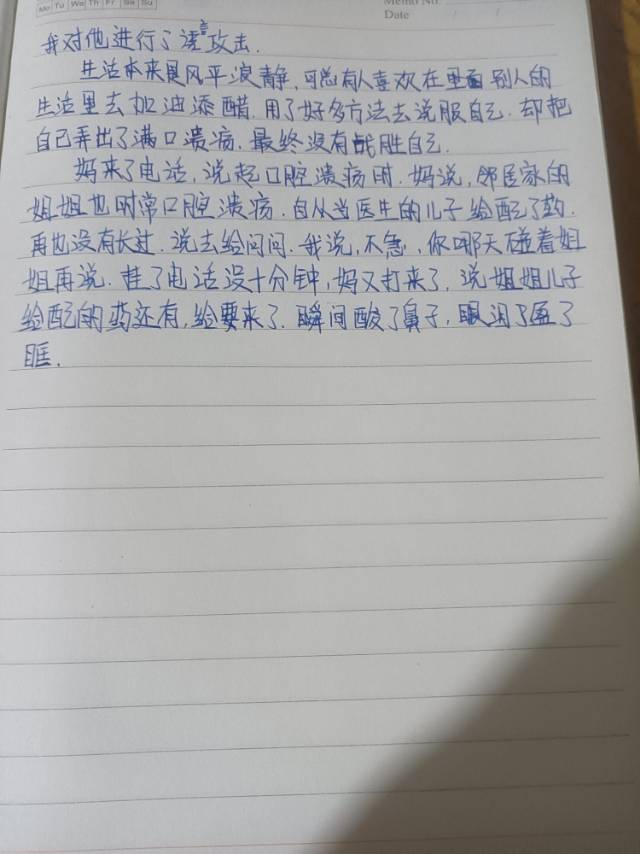 Mo Tu We Th Fr Sa Su
Memo No.
Date / /
我对他进行了语言攻击.
生活本来是风平浪静,可总有人喜欢在别人的
生活里去加油添醋.用了好多方法去说服自己.却把
自己弄出了满口溃疡.最终没有战胜自己.
妈来了电话,说起口腔溃疡时.妈说,邻居家的
姐姐也时常口腔溃疡.自从当医生的儿子给配了药.
再也没有长过.说去给问问.我说,不急,你哪天碰着姐
姐再说.挂了电话没十分钟,妈又打来了.说姐姐儿子
给配的药还有,给要来了.瞬间酸了鼻子,眼泪了盈了
眶.